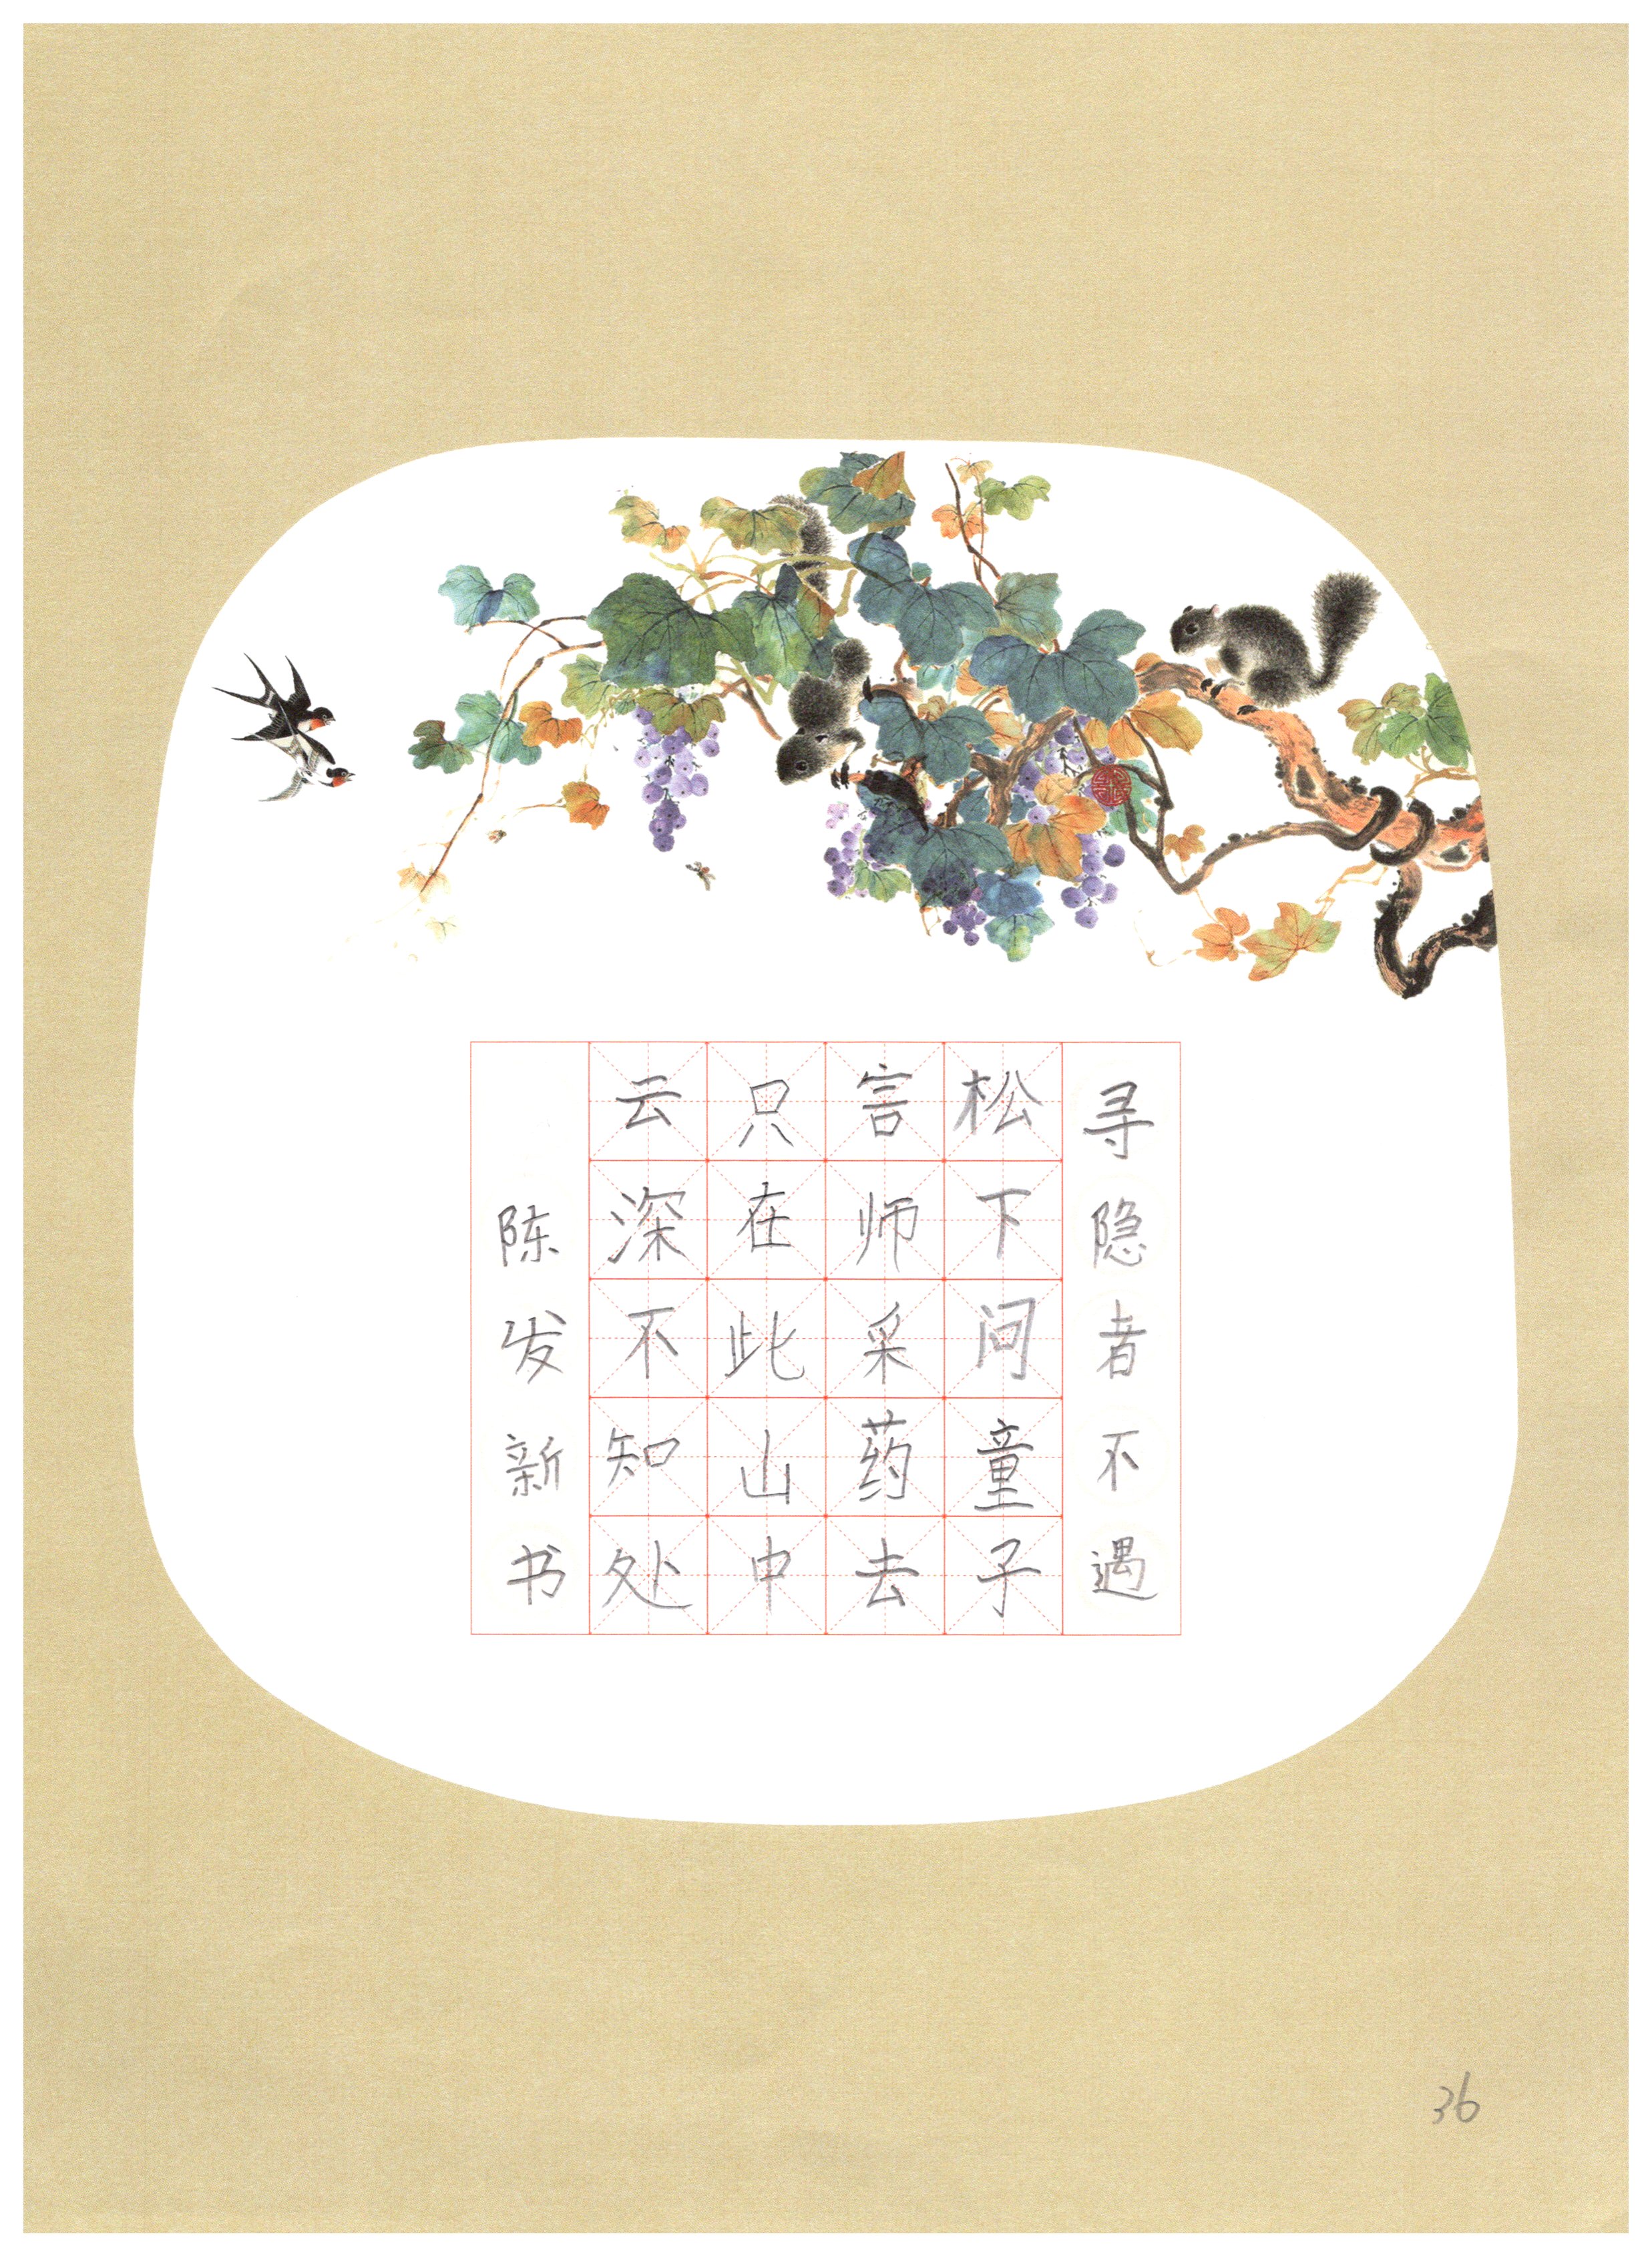 寻隐者不遇
松下问童子
言师采药去
只在此山中
云深不知处
陈发新书
36